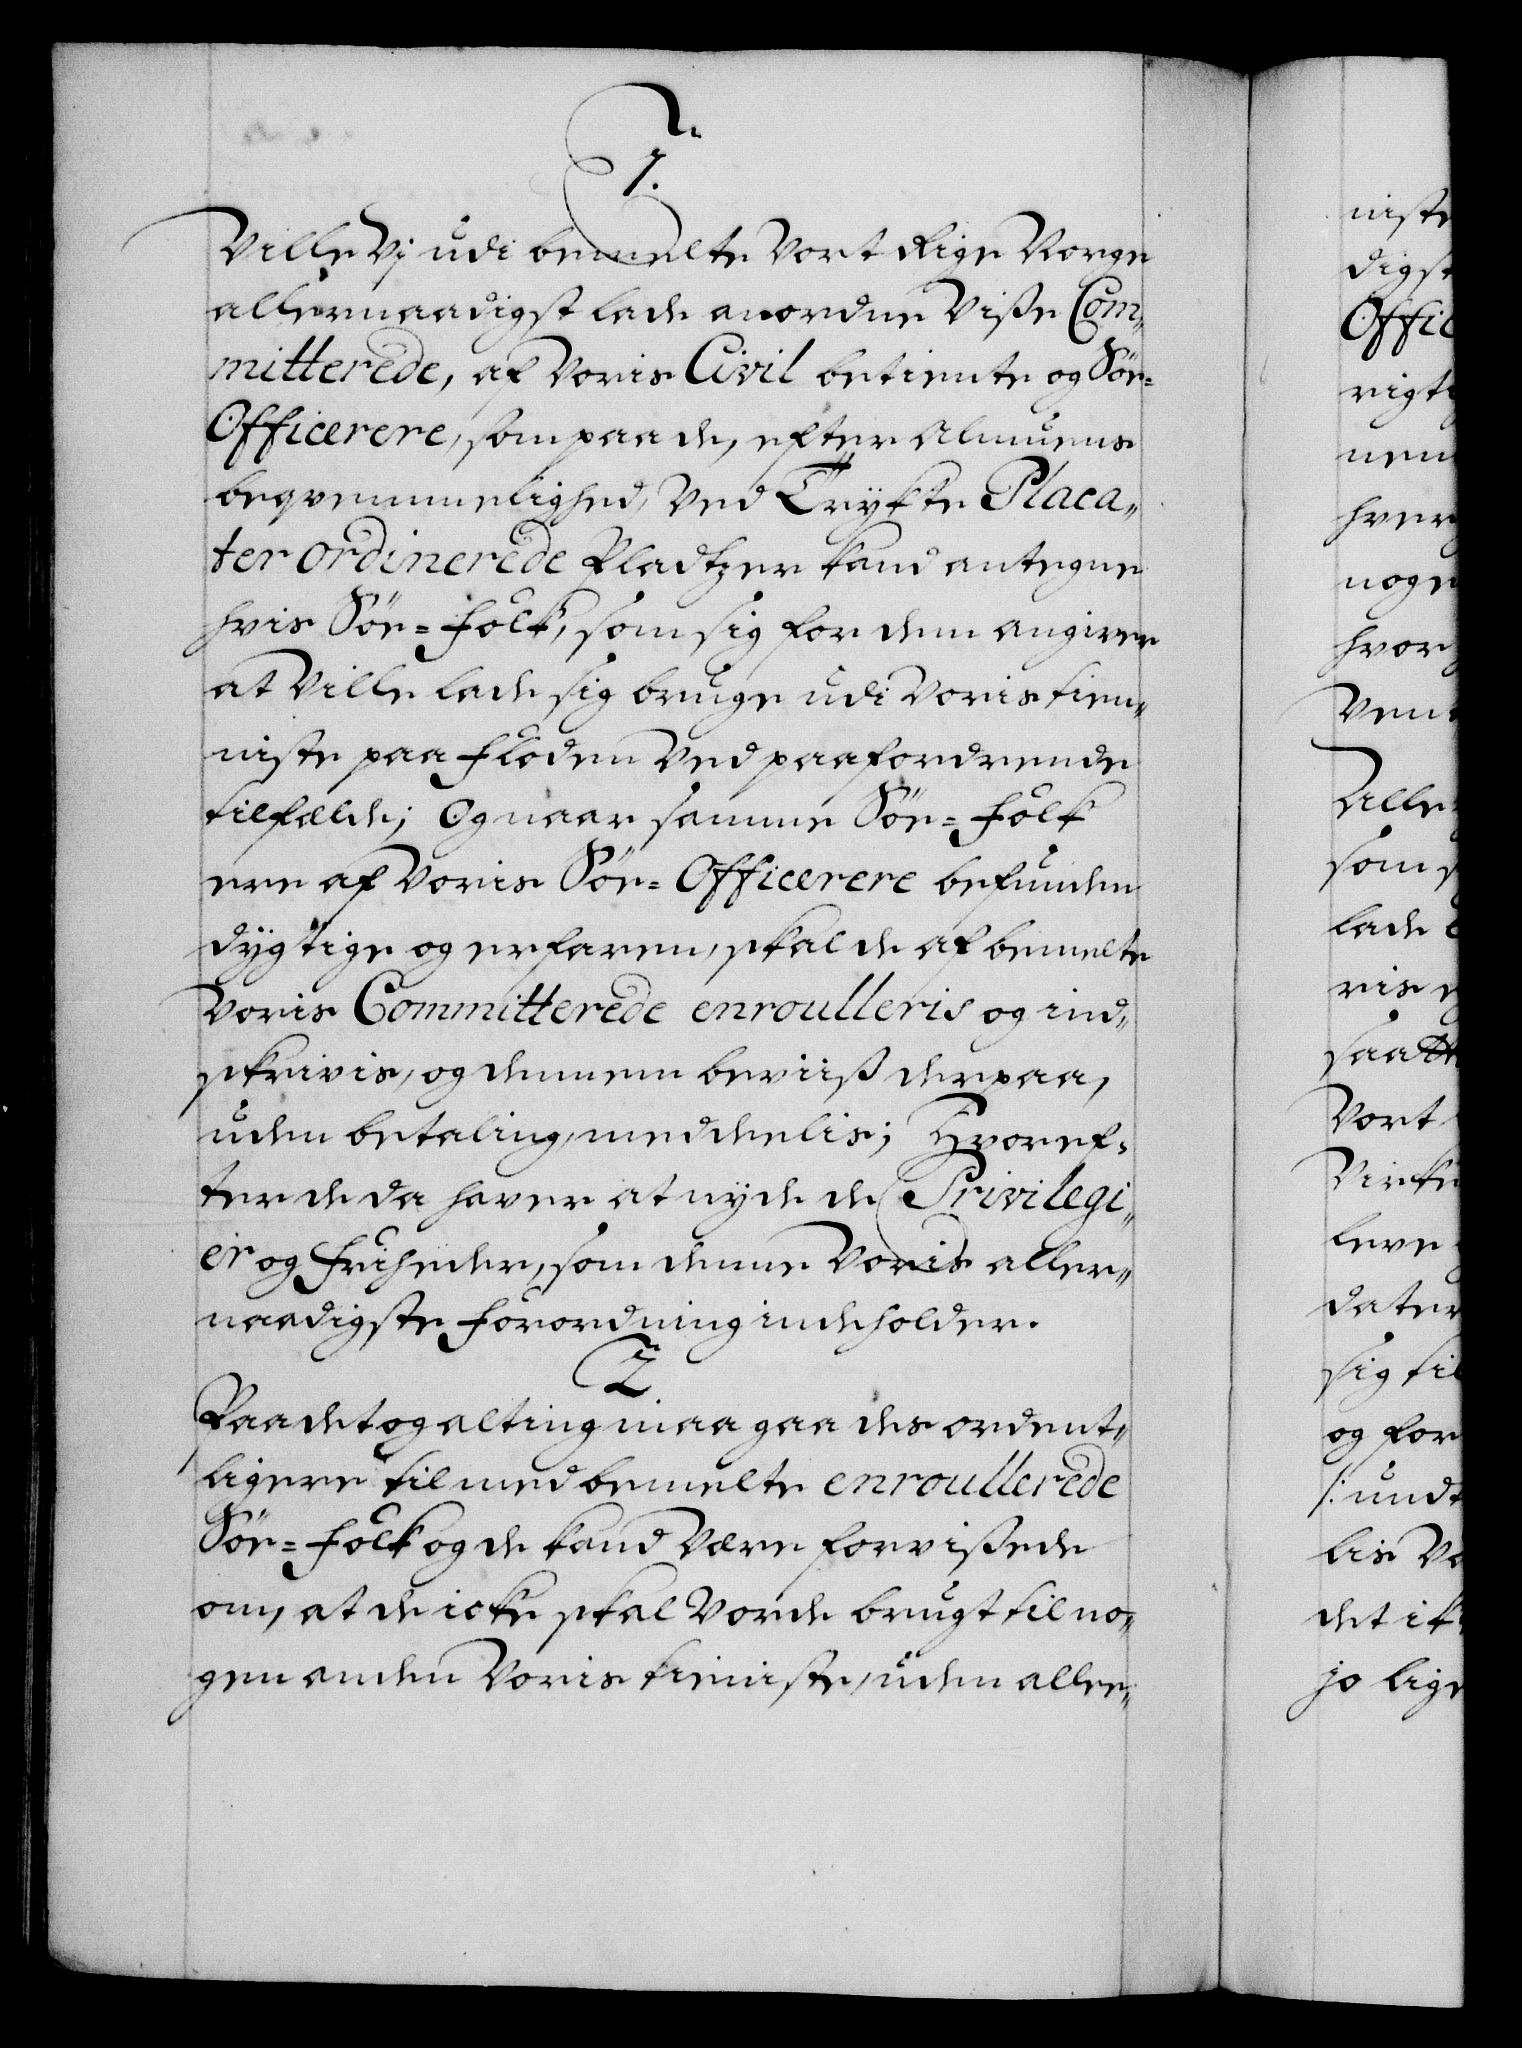 1.
Ville Vj udi bemelte Vort Rige Norge
allernaadigst lade anordne Viße Com„
mitterede, af Voris Civil betiente og Söe=
Officerere, som paa de, efter Almuens
beqvemmelighed, Ved Trykte Placa„
ter ordinerede Pladtzer kand antegne
hvis Söe=folk, som sig for dem angiver
at Ville lade sig bruge udi Voris tien„
niste paa Floden Ved paafordrende
tilfælde; Og naar samme Söe=folk
ere af Voris Söe=Officerere befunden
dygtige og erfaren, skal de af bemelte
Voris Committerede enroulleris og ind„
skrivis, og dennem beviiß derpaa,
uden betaling, meddeelis; Hvoref„
ter de da haver at nyde de Privilegi„
er og Friheder, som denne Voris aller„
naadigste Forordning indeholder.
2
Paa det og alting maa gaa des ordent„
ligere til med bemelte enroullerede
Söe=folk og de kand Være forvißede
om, at de icke skal Vorde brugt til no„
gen anden Voris tieniste, uden aller„
niste
digst
Offic
rigti
nem
hver
noge
hvor
Ven
Alle
som s
lade
ris
saa
Vort
Virke
leve
dater
sig til
og for
/: undt
lis Vo
det ik
jo lige